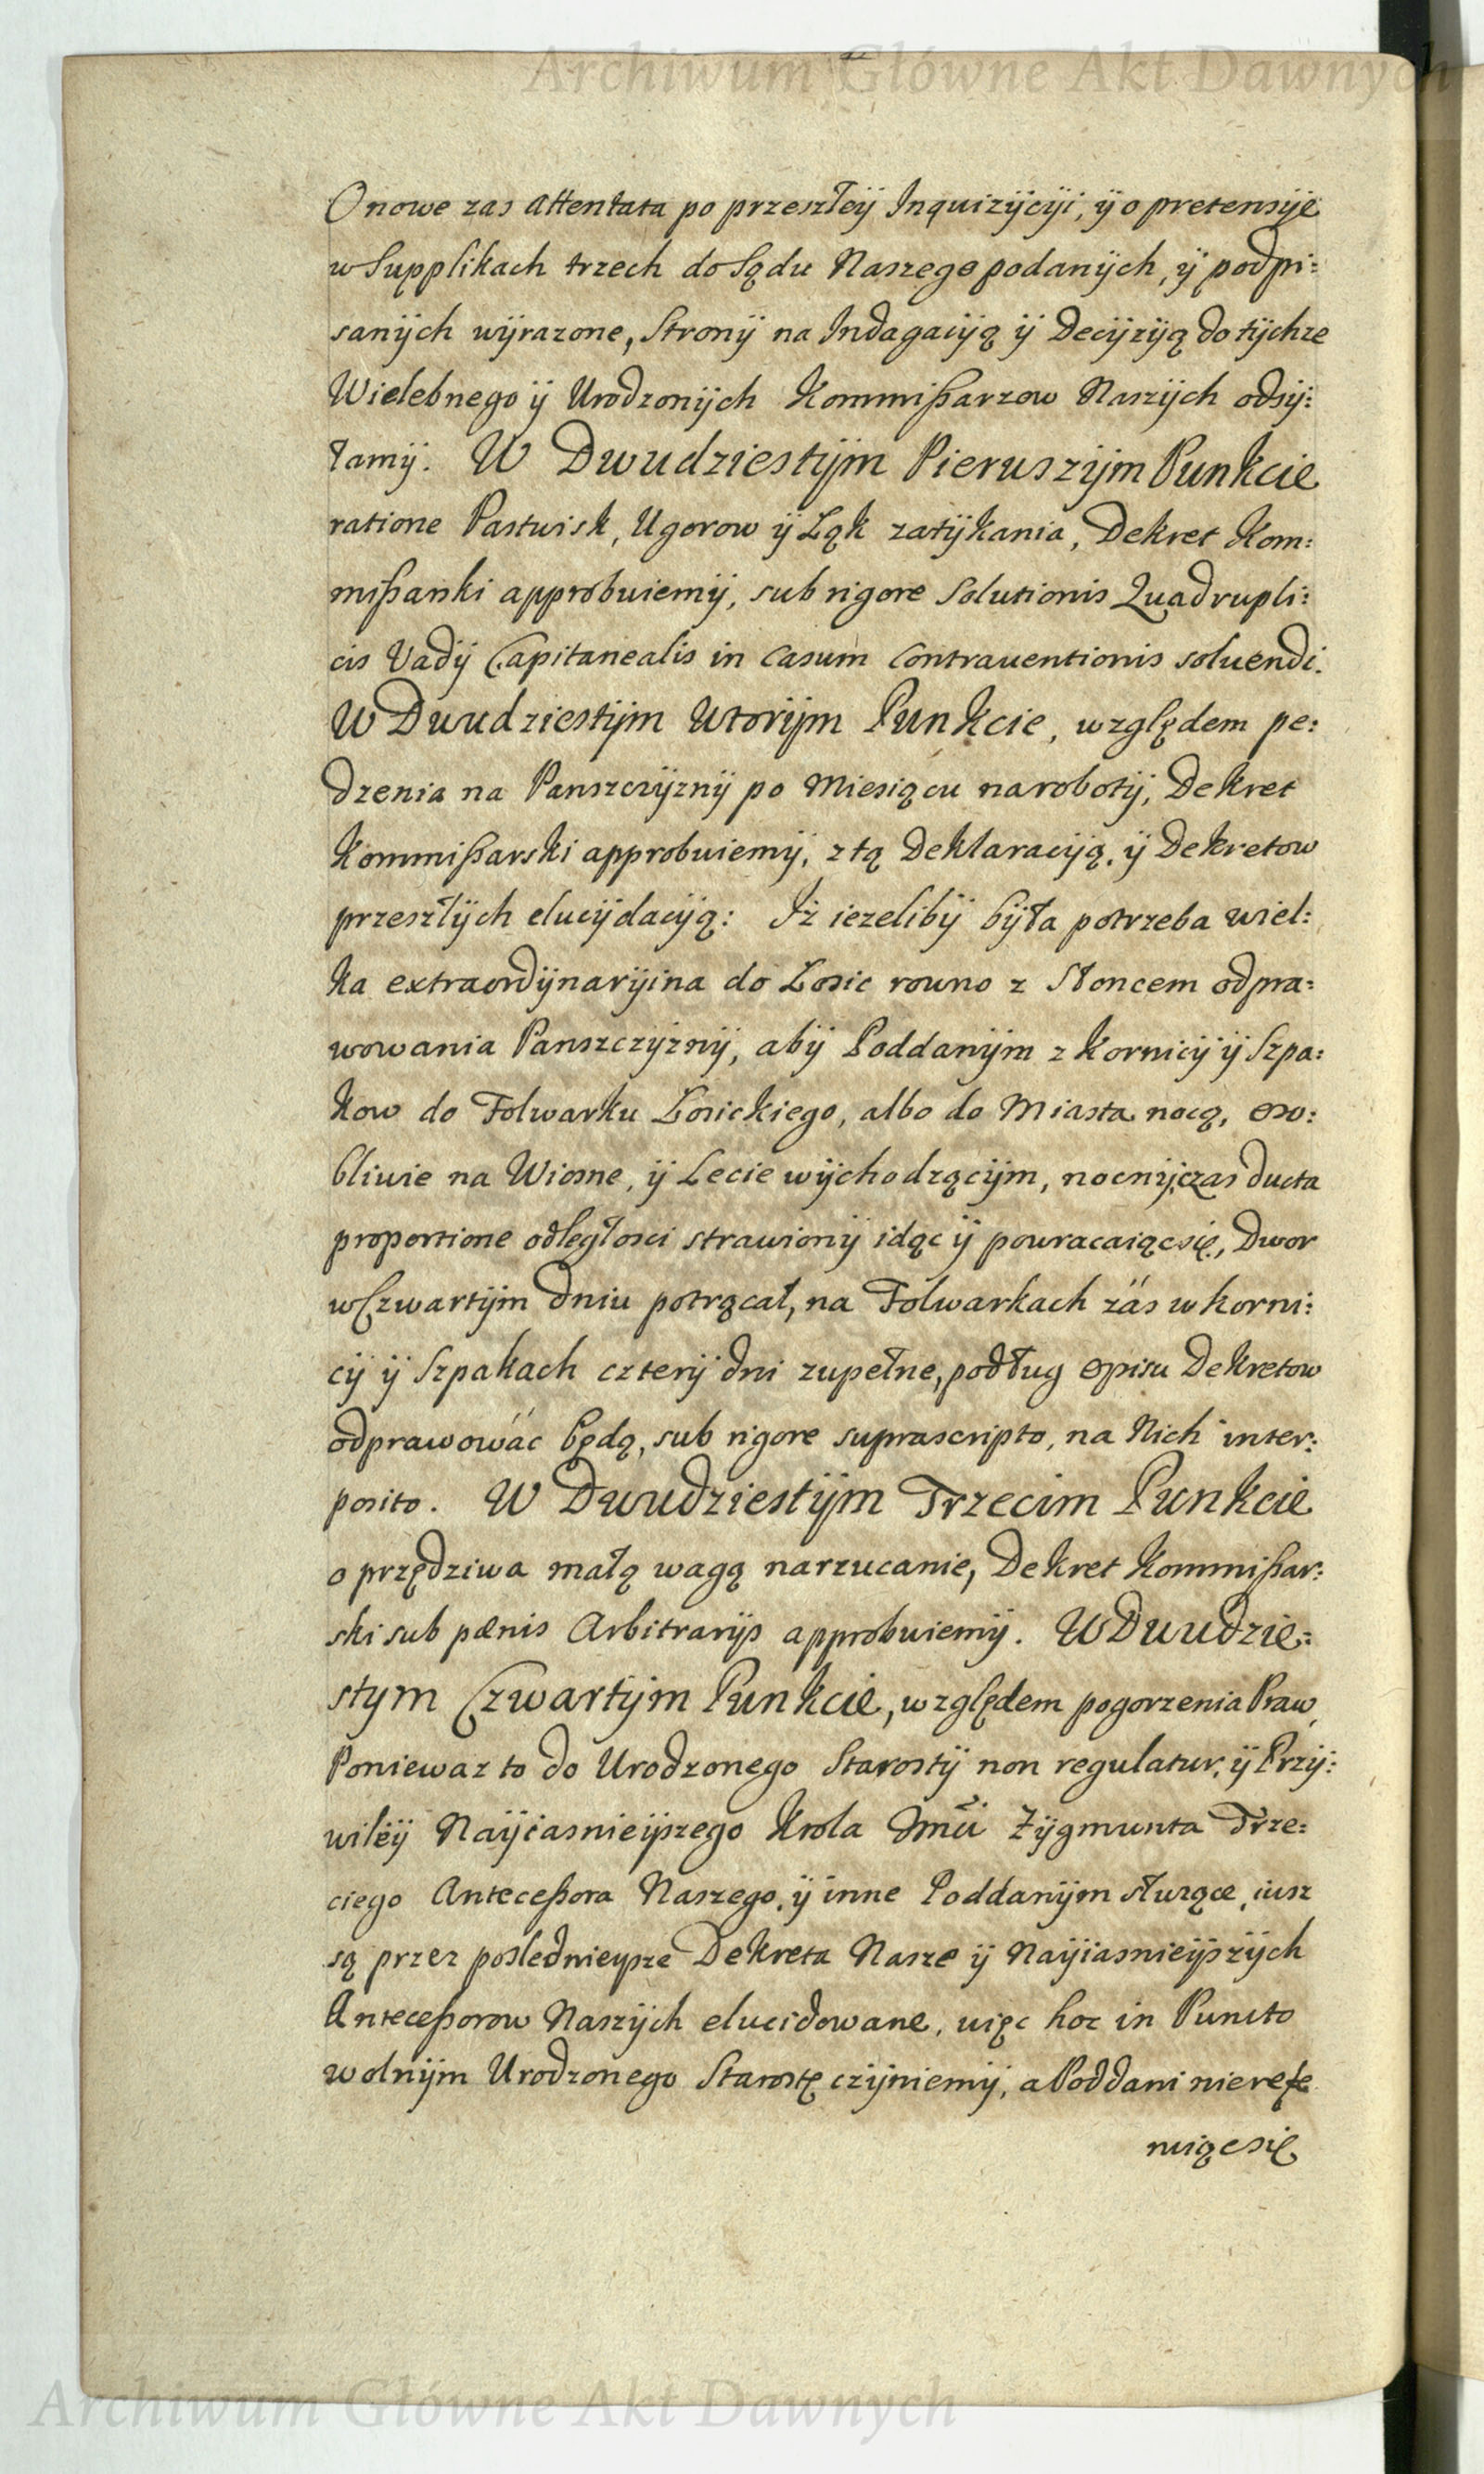 Archiwum Główne Akt Dawnych
O nowe zas attentata po przeszłeÿ Inquizÿcÿi, ÿ o pretensÿe
w Supplikach trzech do Sądu Naszego podanÿch, ÿ podpi:
sanÿch wÿrazone, Stronÿ na Indagacÿą ÿ Decÿzÿą do tÿchze
Wielebnego ÿ Urodzonÿch Kommißarzow Naszÿch odsÿ:
łamÿ. W Dwudziestÿm Pierwszÿm Punkcie
ratione Pastwisk, Ugorow ÿ Ląk zatÿkania, Dekret Kom:
mißarski approbuiemÿ, sub rigore Solutionis Quadrupli:
cis Vadÿ Capitanealis in casum contrauentionis soluendi.
W Dwudziestÿm Wtorÿm Punkcie, względem pe:
dzenia na Panszczÿznÿ po Miesiącu na robotÿ, Dekret
Kommißarski approbuiemÿ, z tą Deklaracÿą, ÿ Dekretow
przeszłÿch elucÿdacÿą: Iż iezelibÿ bÿła potrzeba wiel:
ka extraordÿnarÿina do Łosic rowno z Słoncem odpra:
wowania Panszczÿznÿ, abÿ Poddanÿm z Kornicÿ ÿ Szpa:
kow do Folwarku Łosickiego, albo do Miasta nocą, oso:
bliwie na Wiosne, ÿ Lecie wÿchodzącÿm, nocnÿ czas ducta
proportione odległosci strawionÿ idąc ÿ powracaiąc się, Dwor
w Czwartÿm dniu potrącał, na Folwarkach záś w Korni:
cÿ ÿ Szpakach czterÿ dni zupełne, podług opisu Dekretow
odprawowáć będą, sub rigore suprascripto, na Nich inter:
posito. W Dwudziestÿm Trzecim Punkcie
o przędziwa małą wagą narzucanie, Dekret Kommißar:
ski sub pœnis Arbitrarÿs approbuiemÿ. W Dwudzie:
stym Czwartÿm Punkcie, względem pogorzenia Praw,
Poniewaz to do Urodzonego Starostÿ non regulatur, ÿ Przÿ:
wileÿ Naÿiasnieÿszego Krola Jmci Zÿgmunta Trze:
ciego Anteceßora Naszego, ÿ inne Poddanÿm służące, iusz
są przez posledniejsze Dekreta Nasze ÿ Naÿiasnieÿszÿch
Anteceßorow Naszÿch elucidowane, więc hoc in Puncto
wolnÿm Urodzonego Starostę czÿniemÿ, a Poddani nie refe
ruiąc się
Archiwum Główne Akt Dawnych